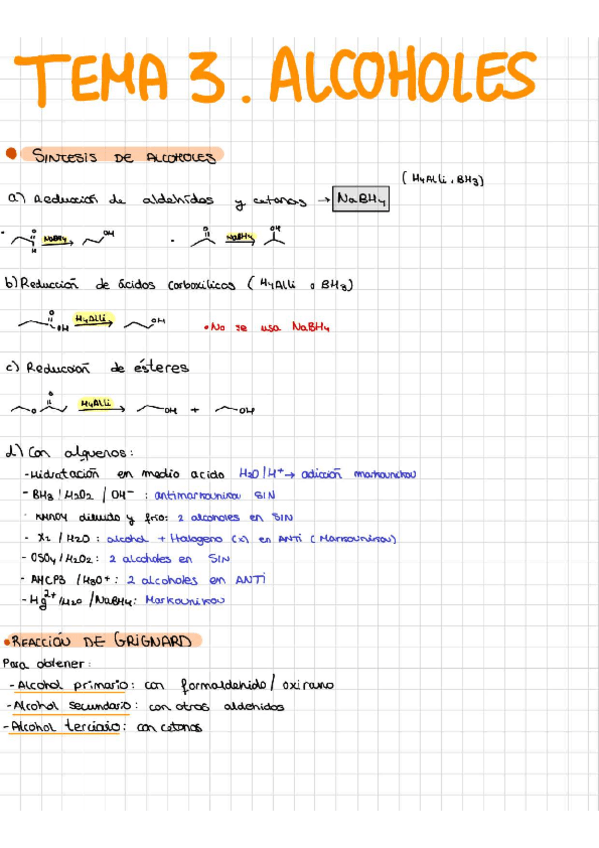 TEMA 3. ALCOHOLES
SINTESIS DE ALCOHOLES
(H4AlLi, BH3)
a) Reducción de aldehídos y cetonas → NaBH4
O H NaBH4 OH O NaBH4 OH
b) Reducción de ácidos carboxílicos (H4AlLi o BH3)
O OH H4AlLi OH • No se usa NaBH4
c) Reducción de ésteres
O O H4AlLi OH + OH
d) Con alquenos:
- Hidratación en medio acido H2O/H+ → adición markounikou
- BH3/H2O2/OH- : antimarkounikou SIN
· KMnO4 diluido y frío: 2 alcoholes en SIN
- X2/H2O: alcohol + Halogeno (X) en ANTI (Markounikou)
- OSO4/H2O2: 2 alcoholes en SIN
- AHCPB/H3O+: 2 alcoholes en ANTI
- Hg2+/H2O/NaBH4: Markounikou
• REACCIÓN DE GRIGNARD
Para obtener:
- Alcohol primario: con formaldehido/oxirano
- Alcohol secundario: con otros aldehidos
- Alcohol terciario: con cetonas